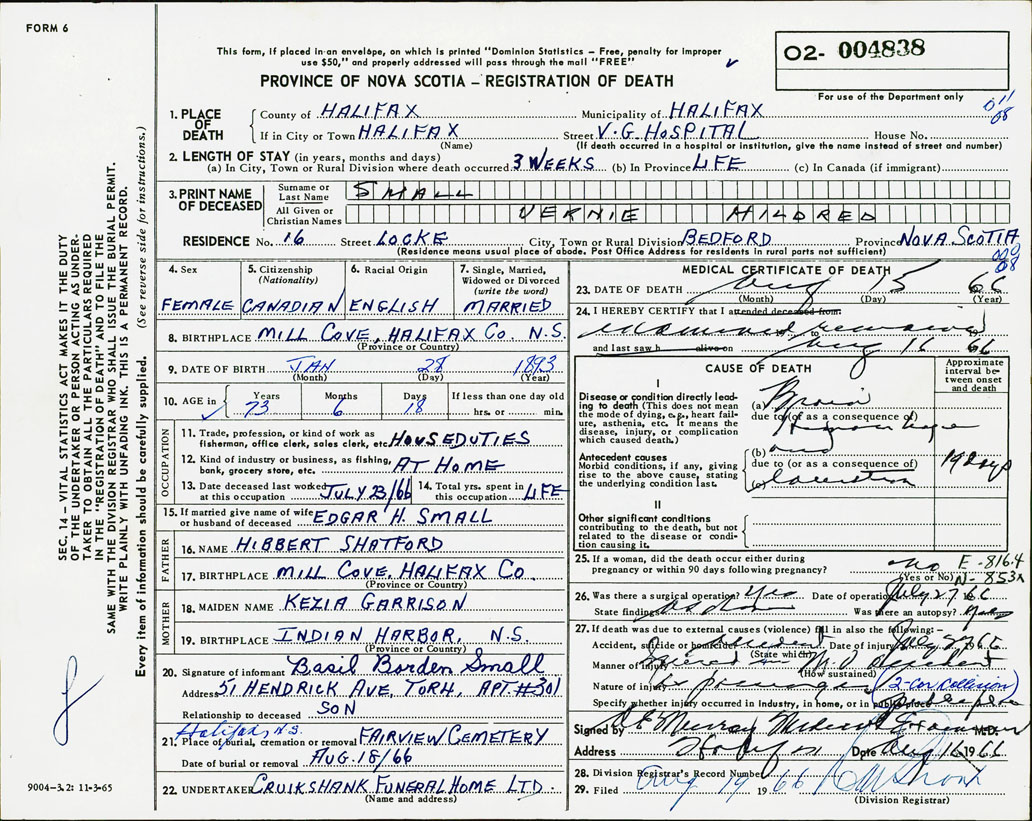 FORM 6
This form, if placed in an envelope, on which is printed "Dominion Statistics – Free, penalty for improper
use $50," and properly addressed will pass through the mail "FREE"
O2- 004838
PROVINCE OF NOVA SCOTIA – REGISTRATION OF DEATH
For use of the Department only
SEC. 14 – VITAL STATISTICS ACT MAKES IT THE DUTY
OF THE UNDERTAKER OR PERSON ACTING AS UNDER-
TAKER TO OBTAIN ALL THE PARTICULARS REQUIRED
IN THE "REGISTRATION OF DEATH" AND TO FILE THE
SAME WITH THE DIVISION REGISTRAR WHO SHALL ISSUE THE BURIAL PERMIT.
WRITE PLAINLY WITH UNFADING INK. THIS IS A PERMANENT RECORD.
Every item of information should be carefully supplied. (See reverse side for instructions.)
1. PLACE OF DEATH County of HALIFAX Municipality of HALIFAX
If in City or Town HALIFAX Street V.G. HOSPITAL House No.
(Name) (If death occurred in a hospital or institution, give the name instead of street and number)
2. LENGTH OF STAY (in years, months and days)
(a) In City, Town or Rural Division where death occurred 3 WEEKS (b) In Province LIFE (c) In Canada (if immigrant)
3. PRINT NAME OF DECEASED Surname or Last Name SMALL
All Given or Christian Names VERNIE MILDRED
RESIDENCE No. 16 Street LOCKE City, Town or Rural Division BEDFORD Province NOVA SCOTIA
(Residence means usual place of abode. Post Office Address for residents in rural parts not sufficient)
4. Sex 5. Citizenship (Nationality) 6. Racial Origin 7. Single, Married, Widowed or Divorced (write the word)
FEMALE CANADIAN ENGLISH MARRIED
8. BIRTHPLACE MILL COVE, HALIFAX CO. N.S.
(Province or Country)
9. DATE OF BIRTH JAN 28 1893
(Month) (Day) (Year)
10. AGE in Years 73 Months 6 Days 18 If less than one day old hrs. or min.
OCCUPATION
11. Trade, profession, or kind of work as
fisherman, office clerk, sales clerk, etc. HOUSEDUTIES
12. Kind of industry or business, as fishing,
bank, grocery store, etc. AT HOME
13. Date deceased last worked at this occupation JULY 23/66 14. Total yrs. spent in this occupation LIFE
15. If married give name of wife or husband of deceased EDGAR H. SMALL
FATHER
16. NAME HIBBERT SHATFORD
17. BIRTHPLACE MILL COVE, HALIFAX CO.
(Province or Country)
MOTHER
18. MAIDEN NAME KEZIA GARRISON
19. BIRTHPLACE INDIAN HARBOR, N.S.
(Province or Country)
20. Signature of informant Basil Borden Small
Address 51 HENDRICK AVE, TORH, APT #301
Relationship to deceased SON
Halifax, N.S.
21. Place of burial, cremation or removal FAIRVIEW CEMETERY
Date of burial or removal AUG. 18/66
22. UNDERTAKER CRUIKSHANK FUNERAL HOME LTD.
(Name and address)
9004-3.2: 11-3-65
MEDICAL CERTIFICATE OF DEATH
23. DATE OF DEATH Aug 15 66
(Month) (Day) (Year)
24. I HEREBY CERTIFY that I attended deceased from:
examined remains 19
and last saw h alive on Aug 16 66
CAUSE OF DEATH Approximate interval between onset and death
I
Disease or condition directly leading to death (This does not mean the mode of dying, e.g., heart failure, asthenia, etc. It means the disease, injury, or complication which caused death.)
(a) Brain
due to (or as a consequence of)
Hemorrhage
Antecedent causes
Morbid conditions, if any, giving rise to the above cause, stating the underlying condition last.
(b) and
due to (or as a consequence of)
(c) laceration
19 days
II
Other significant conditions
contributing to the death, but not related to the disease or condition causing it.
25. If a woman, did the death occur either during
pregnancy or within 90 days following pregnancy? no
(Yes or No)
E-816.4
N-853
26. Was there a surgical operation? Yes Date of operation July 27 66
State findings as above Was there an autopsy?
27. If death was due to external causes (violence) fill in also the following:–
Accident, suicide or homicide Accident Date of injury July 27 1966
(State which)
Manner of injury M.V. accident
(How sustained)
(2-Car Collision)
Nature of injury
Specify whether injury occurred in industry, in home, or in public place
Signed by Murray Medical Examiner M.D.
Address Halifax Date Aug 16 1966
28. Division Registrar's Record Number
29. Filed Aug 19 1966
(Division Registrar)